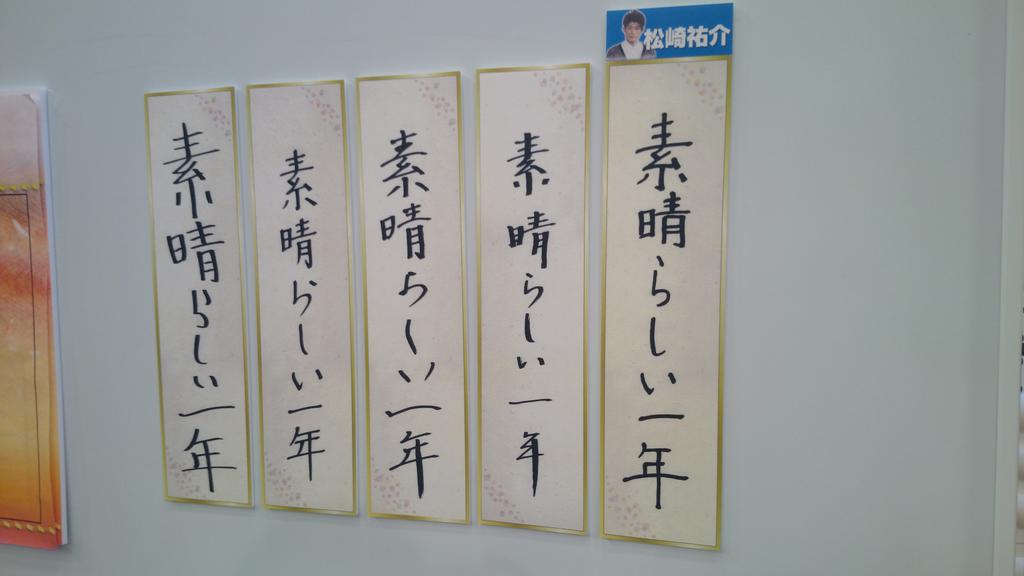 松崎祐介
素晴らしい一年
素晴らしい一年
素晴らしい一年
素晴らしい一年
素晴らしい一年